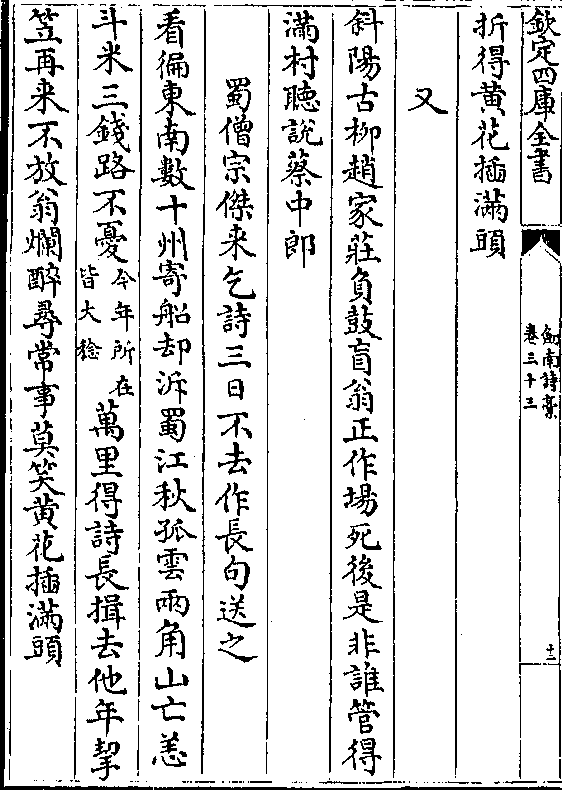 欽定四庫全書
劍南詩稾
卷三十三
十二
折得黄花插滿頭
又
斜陽古柳趙家莊負鼓盲翁正作場死後是非誰管得
滿村聽說蔡中郎
蜀僧宗傑来乞詩三日不去作長句送之
看徧東南數十州寄船却泝蜀江秋孤雲兩角山亡恙
斗米三錢路不憂今年所在皆大稔萬里得詩長揖去他年挈
笠再来不放翁爛醉尋常事莫笑黄花插滿頭